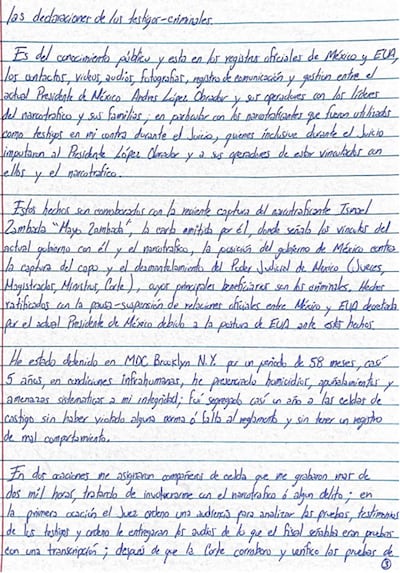 las declaraciones de los testigos-criminales.
Es del conocimiento público y esta en los registros oficiales de México y EUA,
los contactos, videos, audios, fotografias, registro de comunicación y gestion entre el
actual Presidente de México Andres López Obrador y sus operadores con los líderes
del narcotrafico y sus familias, en particular con los narcotraficantes que fueron utilizados
como testigos en mi contra durante el Juicio, quienes inclusive durante el Juicio
imputaron al Presidente López Obrador y a sus operadores de estar vinculados con
ellos y el narcotrafico.
Estos hechos son corroborados con la reciente captura del narcotraficante Ismael
Zambada "Mayo Zambada", la carta emitida por él, donde señala los vinculos del
actual gobierno con él y el narcotrafico, la posición del gobierno de México contra
la captura del capo y el desmantelamiento del Poder Judicial de Mexico (Jueces,
Magistrados, Ministros, Corte), cuyos principales beneficiarios son los criminales. Hechos
ratificados con la pausa-suspensión de relaciones oficiales entre México y EUA decretada
por el actual Presidente de México debido a la postura de EUA ante estos hechos.
He estado detenido en MDC Brooklyn N.Y. por un periodo de 58 meses, casi
5 años, en condiciones infrahumanas, he presenciado homicidios, apuñalamientos y
amenazas sistematicas a mi integridad; Fuí segregado casí un año a las celdas de
castigo sin haber violado alguna norma ó falta al reglamento y sin tener un registro
de mal comportamiento.
En dos ocasiones me asignaron compañeros de celda que me grabaron mas de
dos mil horas, tratando de involucrarme con el narcotrafico ó algun delito; en
la primera ocación el Juez ordeno una audiencia para analizar las pruebas, testimonios
de los testigos y ordeno le entregaran los audios de lo que el fiscal señalaba eran pruebas
con una transcripción; después de que la Corte corroboro y verifico las pruebas de
3